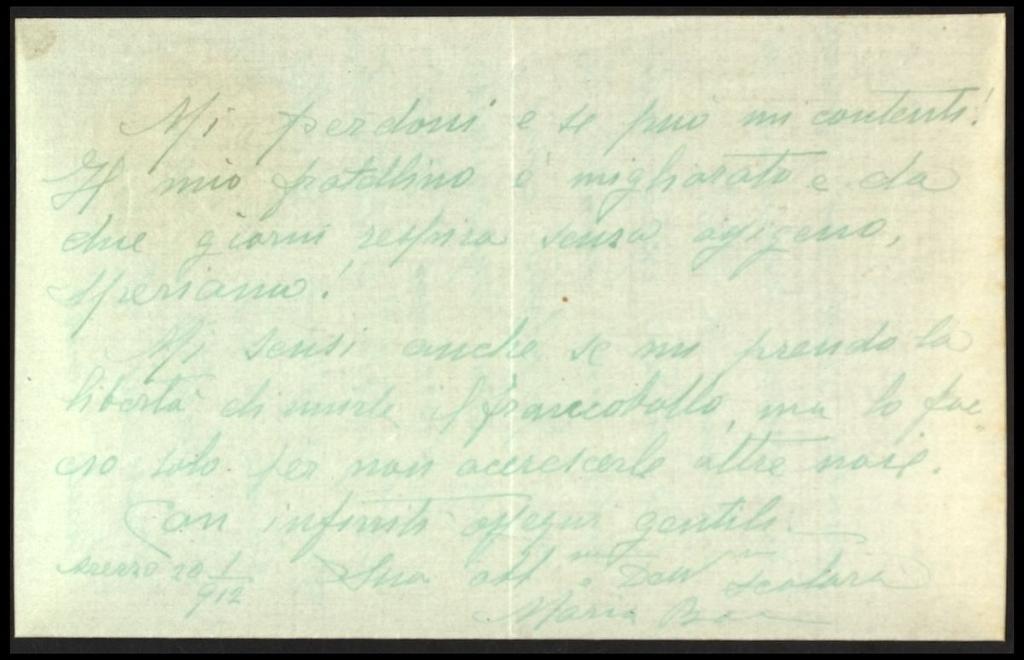 Mi perdoni e se può mi contenti!
Il mio fratellino è migliorato e da
due giorni respira senza ossigeno,
speriamo!
Mi scusi anche se mi prendo la
libertà di unirle il francobollo, ma lo fac
cio solo per non accrescerle altre noie.
Con infiniti ossequi gentili
Arezzo 20 1/912 Sua obb.ma e Dev.ma scolara
Maria